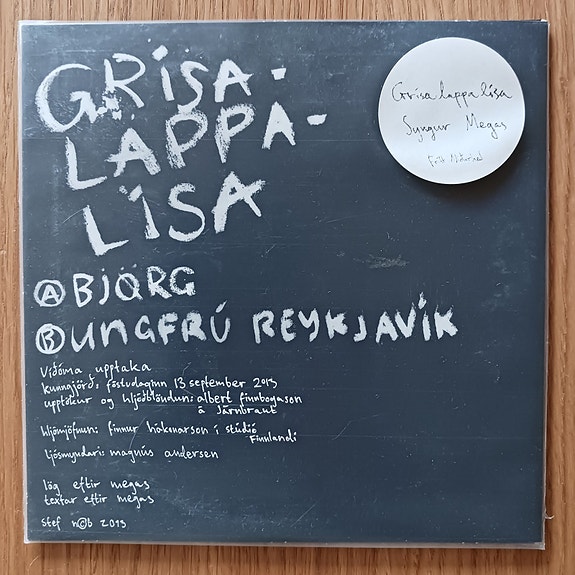 GRÍSA-
LAPPA-
LÍSA
Ⓐ BJÖRG
Ⓑ UNGFRÚ REYKJAVÍK
Víðóma upptaka
kunngjörð: föstudaginn 13 september 2013
upptökur og hljóðblöndun: albert finnbogason
á Járnbraut
hljómjöfnun: finnur hákonarson í stúdíó
Finnlandi
ljósmyndari: magnús andersen
lög eftir megas
textar eftir megas
Stef n©b 2013
Grísalappalísa
Syngur Megas